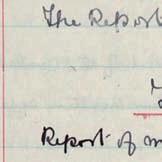 The Report
Report of m